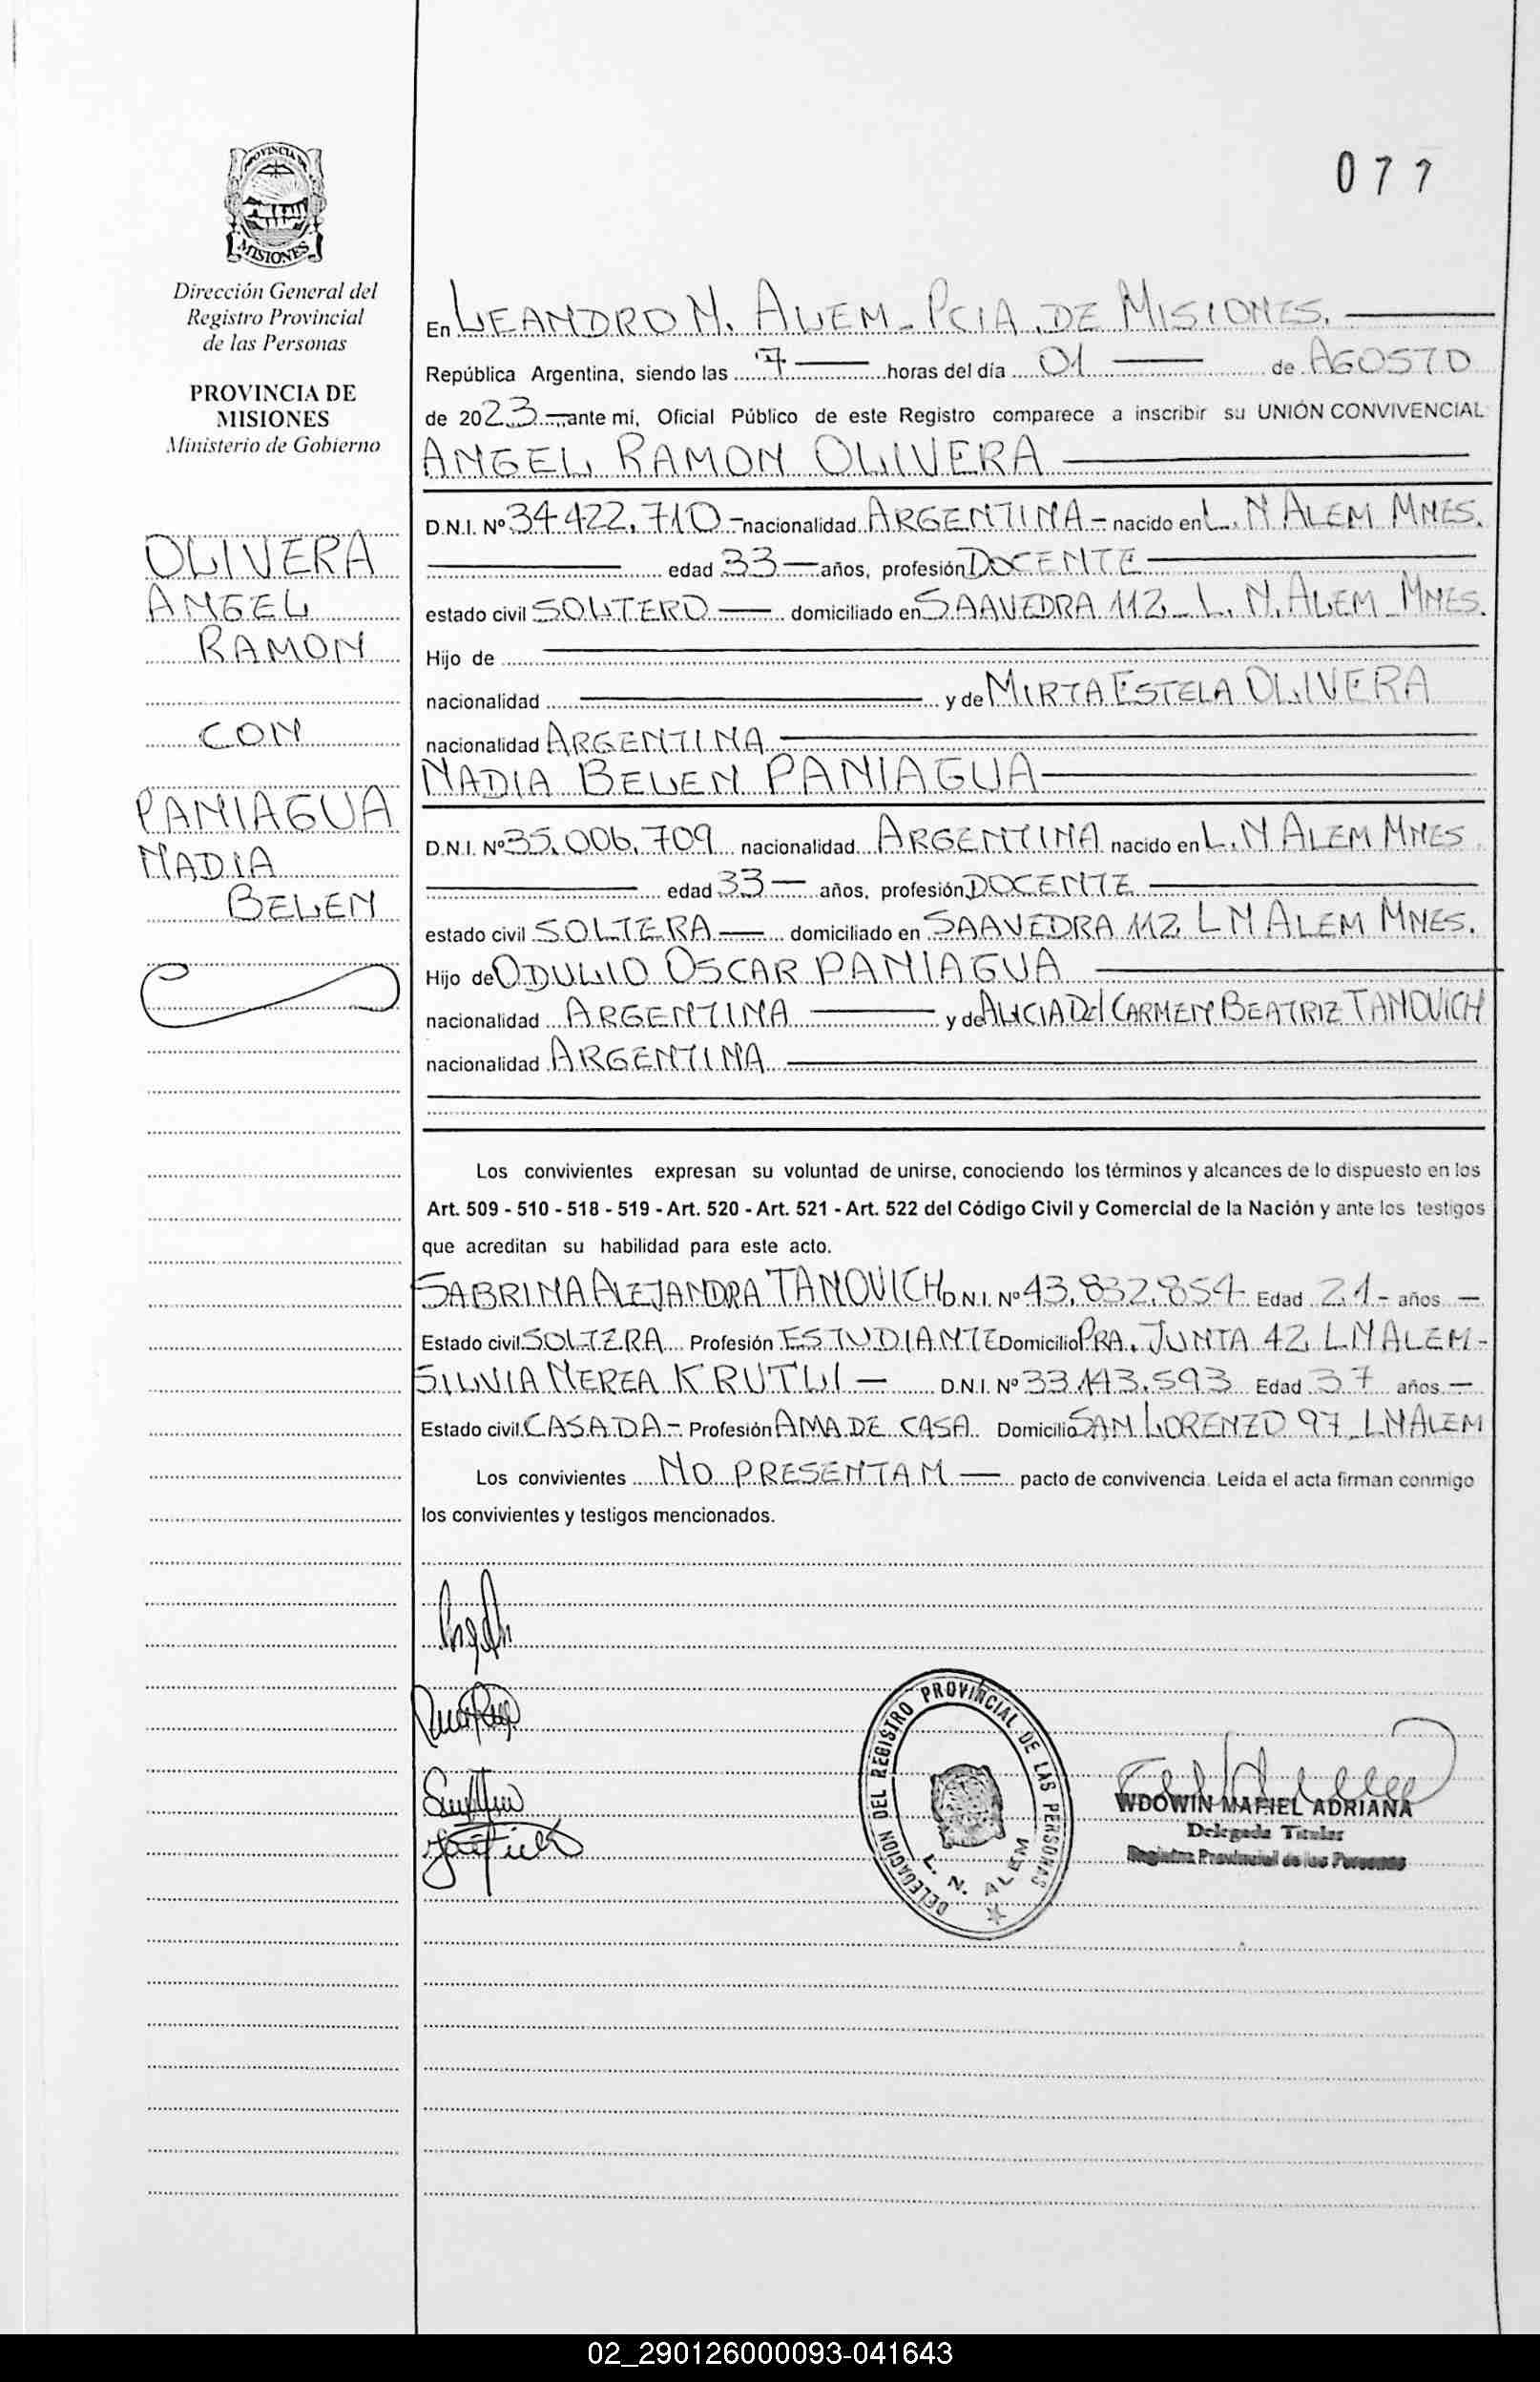 077
PROVINCIA DE
MISIONES
Dirección General del
Registro Provincial
de las Personas
PROVINCIA DE
MISIONES
Ministerio de Gobierno
OLIVERA
ANGEL
RAMON
CON
PANIAGUA
NADIA
BELEN
En LEANDRO N. ALEM - PCIA. DE MISIONES.
República Argentina, siendo las 7 horas del día 01 de AGOSTO
de 2023 ante mí, Oficial Público de este Registro comparece a inscribir su UNIÓN CONVIVENCIAL
ANGEL RAMON OLIVERA
D.N.I. Nº 34.422.710 - nacionalidad ARGENTINA - nacido en L. N ALEM MNES.
edad 33 años, profesión DOCENTE
estado civil SOLTERO domiciliado en SAAVEDRA 112 - L. N. ALEM - MNES.
Hijo de
nacionalidad y de MIRTA ESTELA OLIVERA
nacionalidad ARGENTINA
NADIA BELEN PANIAGUA
D.N.I. Nº 35.006.709 nacionalidad ARGENTINA nacido en L. N ALEM MNES
edad 33 años, profesión DOCENTE
estado civil SOLTERA domiciliado en SAAVEDRA 112 L N ALEM MNES.
Hijo de ODULIO OSCAR PANIAGUA
nacionalidad ARGENTINA y de ALICIA Del CARMEN BEATRIZ TANOVICH
nacionalidad ARGENTINA
Los convivientes expresan su voluntad de unirse, conociendo los términos y alcances de lo dispuesto en los
Art. 509 - 510 - 518 - 519 - Art. 520 - Art. 521 - Art. 522 del Código Civil y Comercial de la Nación y ante los testigos
que acreditan su habilidad para este acto.
SABRINA ALEJANDRA TANOVICH D.N.I. Nº 43.832.854 Edad 21 - años
Estado civil SOLTERA Profesión ESTUDIANTE Domicilio PRA. JUNTA 42 L N ALEM -
SILVIA NEREA KRUTLI D.N.I. Nº 33.143.593 Edad 37 años
Estado civil CASADA - Profesión AMA DE CASA Domicilio SAN LORENZO 97 - L N ALEM
Los convivientes NO PRESENTAN pacto de convivencia. Leída el acta firman conmigo
los convivientes y testigos mencionados.
DELEGACION DEL REGISTRO PROVINCIAL DE LAS PERSONAS
L. N. ALEM
WDOWIN MARIEL ADRIANA
Delegada Titular
Registro Provincial de las Personas
02_290126000093-041643